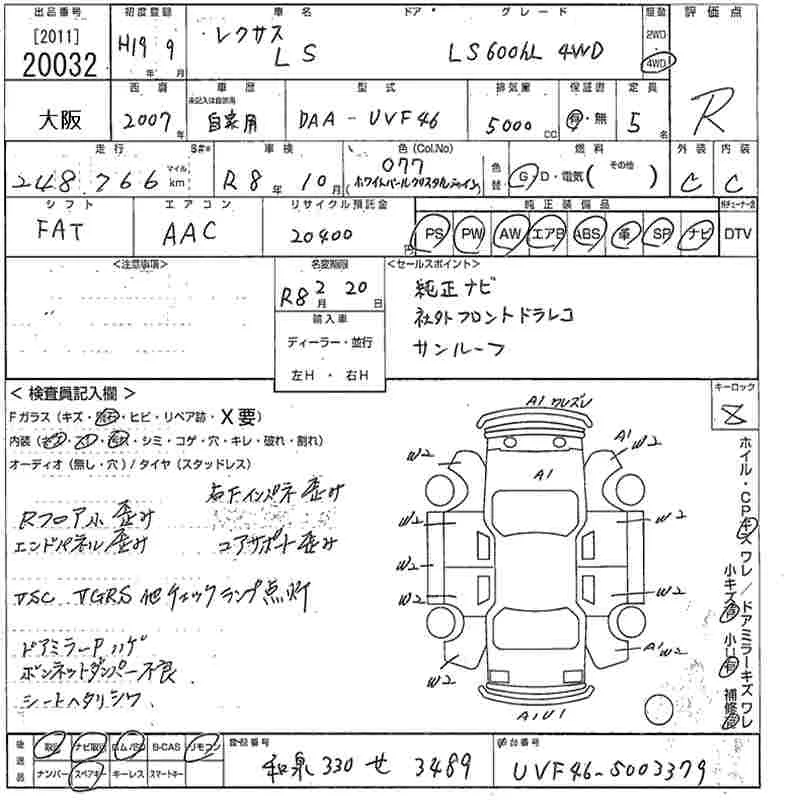 出品番号 初度登録 車名 ドア・ グレード 駆動 評価点
[2011]
20032
H19 9
年 月
レクサス
LS
LS600hL 4WD
2WD
4WD
R
大阪
西暦 車歴 型式 排気量 保証書 定員
未記入は自家用
2007 年
自家用
DAA-UVF46
5000 cc
有・無
5 名
走行 S#* 車検 色(Col.No) 燃料 外装 内装
248,766
マイル
km
R8 年 10 月
077
ホワイトパールクリスタルシャイン
色替
G D・電気( その他 )
C C
シフト エアコン リサイクル預託金 純正装備品
FAT
AAC
20400 円
PS PW AW エアB ABS 革 SR ナビ DTV
<注意事項>
名変期限
R8 2 月 20 日
輸入車
ディーラー・並行
左H・右H
<セールスポイント>
純正ナビ
社外フロントドラレコ
サンルーフ
<検査員記入欄>
Fガラス(キズ・飛石・ヒビ・リペア跡・X要)
内装( ・シミ・コゲ・穴・キレ・破れ・割れ)
オーディオ(無し・穴)/タイヤ(スタッドレス)
右Fインパネ歪み
Rフロア小歪み
エンドパネル歪み コアサポート歪み
VSC VGRS 他チェックランプ点灯
ドアミラーPハゲ
ボンネットダンパー不良
シートヘタリシワ
A1 ワレズレ
W2 A1 W2
A1
W2 W2
W2
W2 W2
W2 A1 W2
A1U1
キーロック
8
ホイル・CPキズ ワレ/ドアミラーキズ ワレ
小キズ有 小U有 補修有
後送品
取説 ナビ取説 B-CAS リモコン
ナンバー スペアキー キーレス スマートキー
登録番号
和泉 330 せ 3489
車台番号
UVF46-5003379